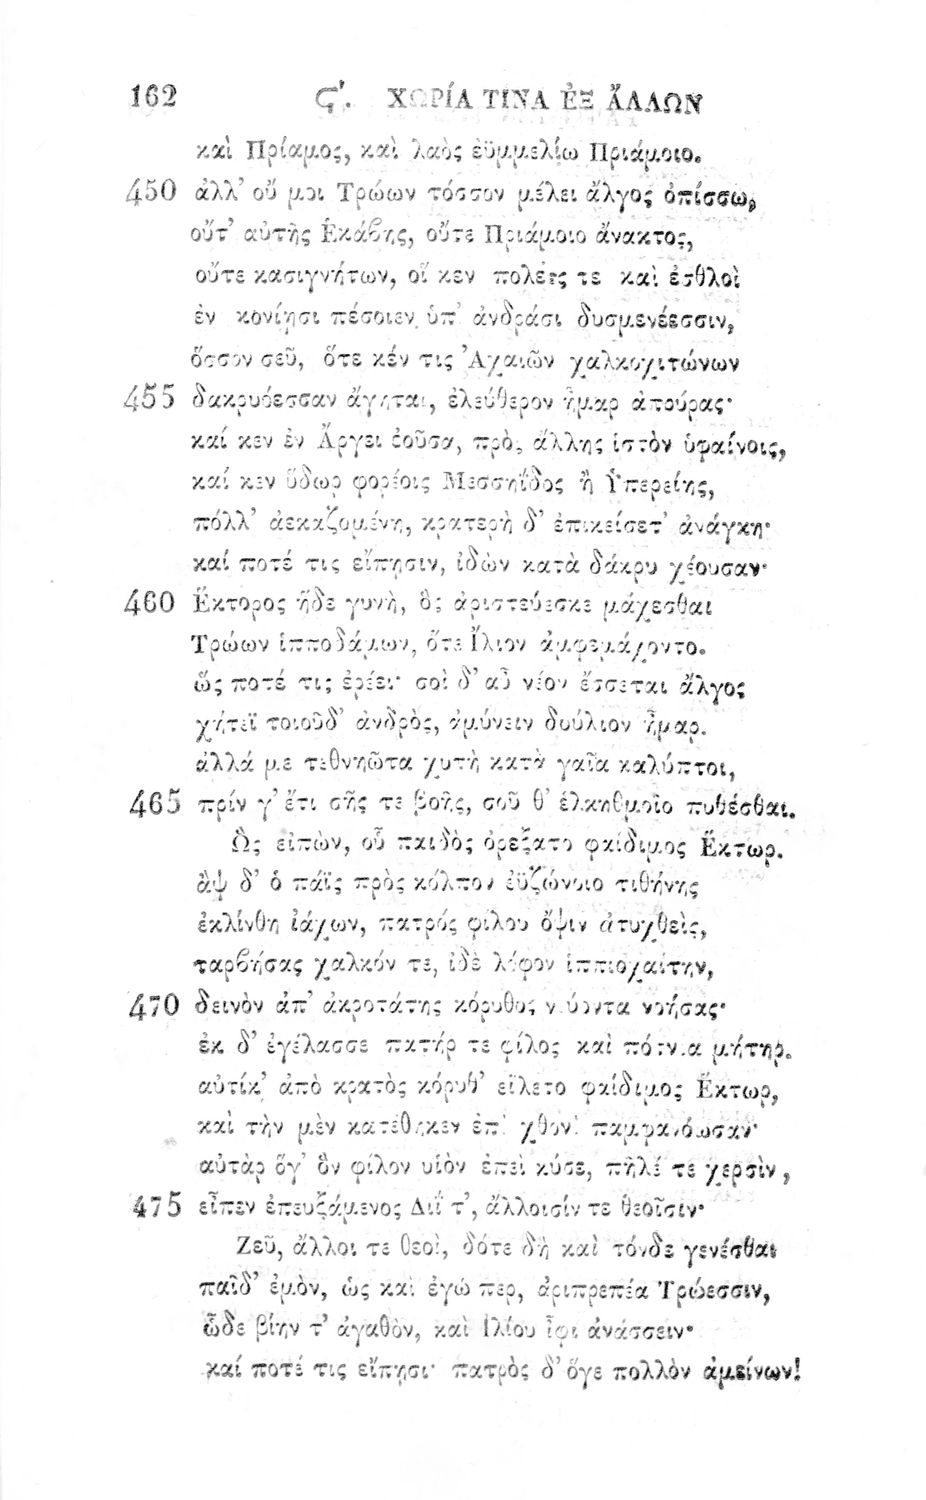 162 Ϛʹ. ΧΩΡΊΑ ΤΙΝᾺ ἘΞ ἌΛΛΩΝ
καὶ Πρίαμος, καὶ λαὸς ἐϋμμελίω Πριάμοιο.
450 ἀλλ’ οὔ μοι Τρώων τόσσον μέλει ἄλγος ὀπίσσω,
οὔτ’ αὐτῆς Ἑκάϐης, οὔτε Πριάμοιο ἄνακτος,
οὔτε κασιγνήτων, οἵ κεν πολέες τε καὶ ἐσθλοὶ
ἐν κονίῃσι πέσοιεν ὑπ’ ἀνδράσι δυσμενέεσσιν,
ὅσσον σεῦ, ὅτε κέν τις Ἀχαιῶν χαλκοχιτώνων
455 δακρυόεσσαν ἄγηται, ἐλεύθερον ἦμαρ ἀπούρας·
καί κεν ἐν Ἄργει ἐοῦσα, πρὸς ἄλλης ἱστὸν ὑφαίνοις,
καί κεν ὕδωρ φορέοις Μεσσηΐδος ἢ Ὑπερείης,
πόλλ’ ἀεκαζομένη, κρατερὴ δ’ ἐπικείσετ’ ἀνάγκη·
καί ποτέ τις εἴπησιν, ἰδὼν κατὰ δάκρυ χέουσαν·
460 Ἕκτορος ἥδε γυνὴ, ὃς ἀριστεύεσκε μάχεσθαι
Τρώων ἱπποδάμων, ὅτε Ἴλιον ἀμφεμάχοντο.
ὥς ποτέ τις ἐρέει· σοὶ δ’ αὖ νέον ἔσσεται ἄλγος
χήτεϊ τοιοῦδ’ ἀνδρὸς, ἀμύνειν δούλιον ἦμαρ.
ἀλλά με τεθνηῶτα χυτὴ κατὰ γαῖα καλύπτοι,
465 πρίν γ’ ἔτι σῆς τε βοῆς, σοῦ θ’ ἑλκηθμοῖο πυθέσθαι.
Ὣς εἰπὼν, οὗ παιδὸς ὀρέξατο φαίδιμος Ἕκτωρ.
ἂψ δ’ ὁ πάϊς πρὸς κόλπον ἐϋζώνοιο τιθήνης
ἐκλίνθη ἰάχων, πατρός φίλου ὄψιν ἀτυχθεὶς,
ταρϐήσας χαλκόν τε, ἰδὲ λόφον ἱππιοχαίτην,
470 δεινὸν ἀπ’ ἀκροτάτης κόρυθος νεύοντα νοήσας·
ἐκ δ’ ἐγέλασσε πατήρ τε φίλος καὶ πότνια μήτηρ.
αὐτίκ’ ἀπὸ κρατὸς κόρυθ’ εἵλετο φαίδιμος Ἕκτωρ,
καὶ τὴν μὲν κατέθηκεν ἐπὶ χθονὶ παμφανόωσαν·
αὐτὰρ ὅγ’ ὃν φίλον υἱὸν ἐπεὶ κύσε, πῆλέ τε χερσὶν,
475 εἶπεν ἐπευξάμενος Διΐ τ’, ἄλλοισίν τε θεοῖσιν·
Ζεῦ, ἄλλοι τε θεοὶ, δότε δὴ καὶ τόνδε γενέσθαι
παῖδ’ ἐμὸν, ὡς καὶ ἐγώ περ, ἀριπρεπέα Τρώεσσιν,
ὧδε βίην τ’ ἀγαθὸν, καὶ Ἰλίου ἶφι ἀνάσσειν·
καί ποτέ τις εἴπησι· πατρὸς δ’ ὅγε πολλὸν ἀμείνων!